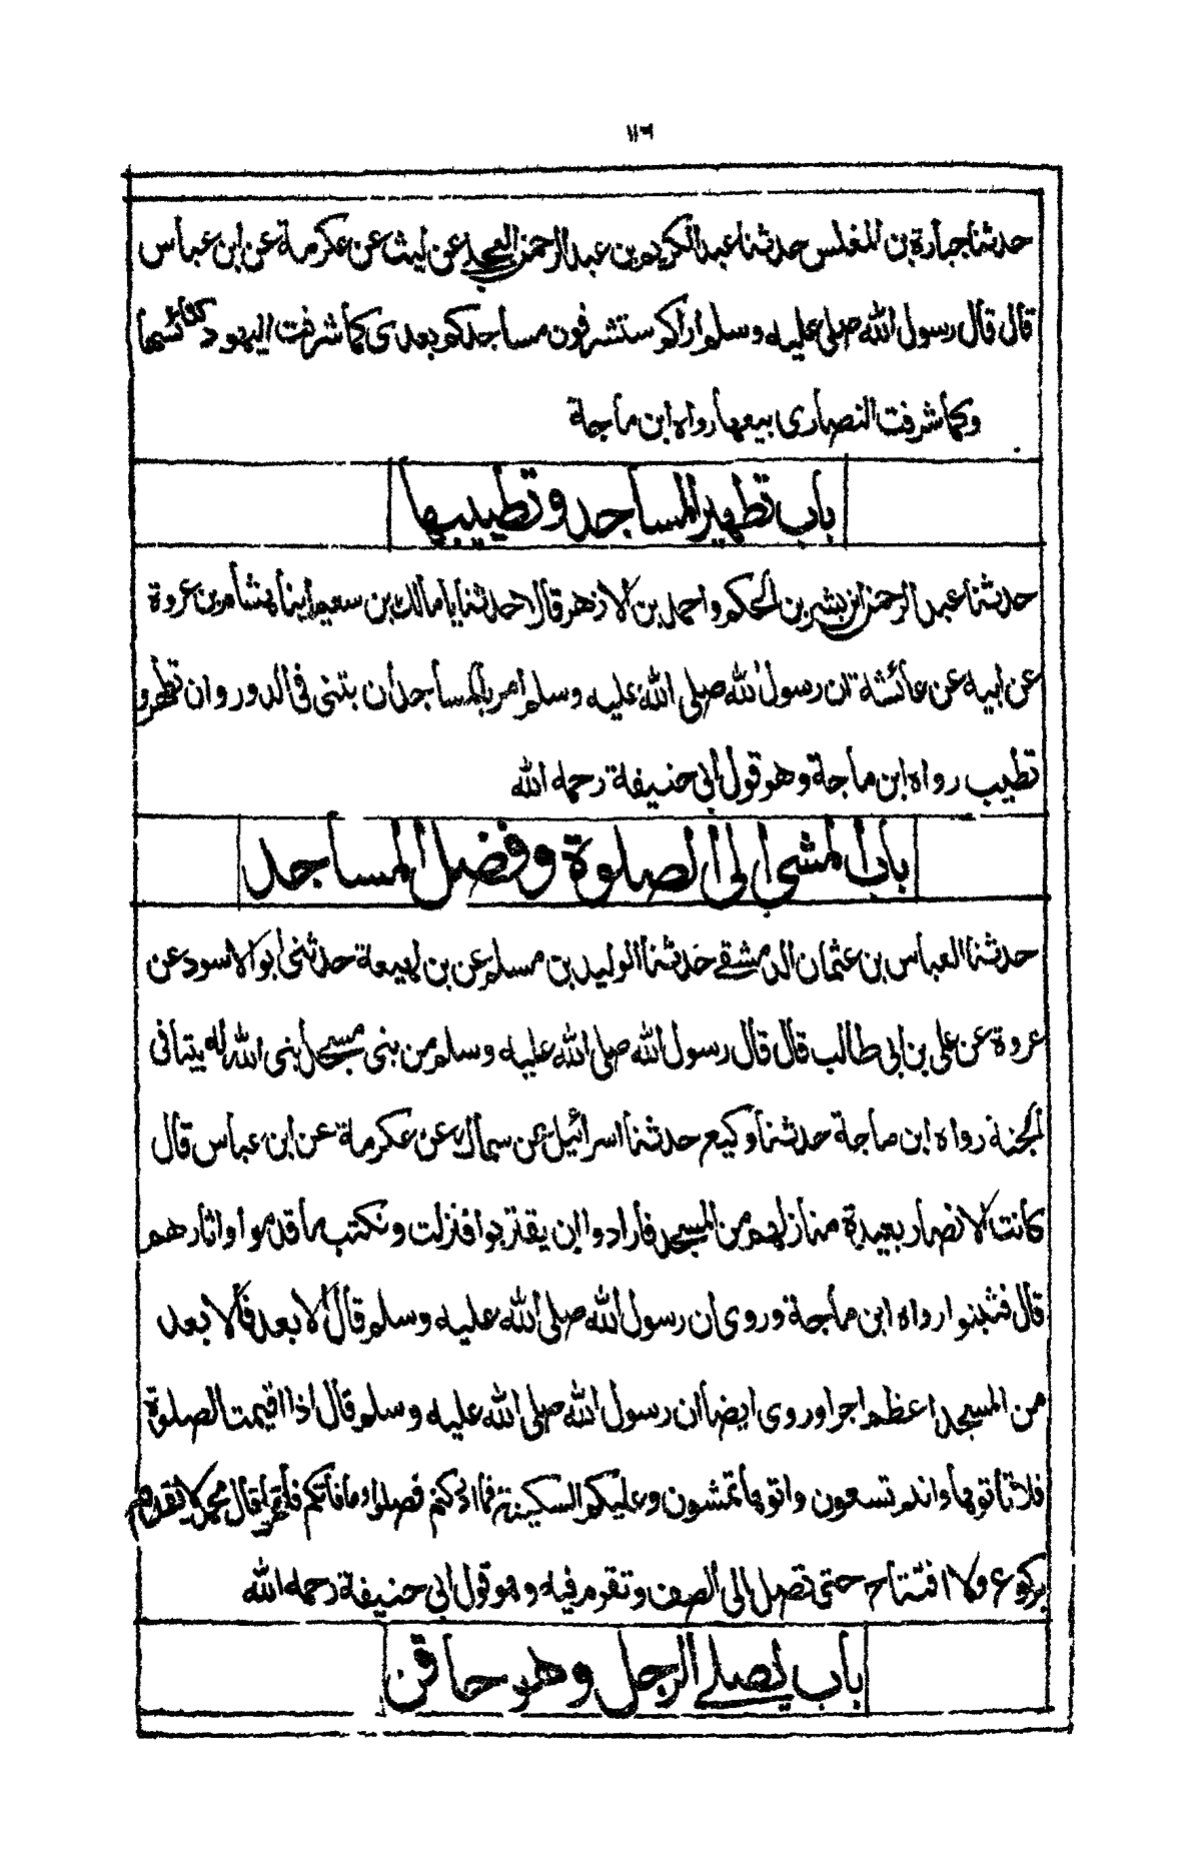 ١١٦
حدثنا جبارة بن المغلس حدثنا عبد الكريم بن عبد الرحمن البجلى عن ليث عن عكرمة عن ابن عباس
قال قال رسول الله صلى عليه وسلم اراكم ستشرفون مساجدكم بعدى كما شرفت اليهود كنائسها
وكما شرفت النصارى بيعها رواه ابن ماجة
باب تطهير المساجد وتطييبها
حدثنا عبد الرحمن ابن بشر بن الحكم واحمد بن الازهر قالا حدثنا مالك بن سعير انبأ هشام بن عروة
عن ابيه عن عائشة ان رسول الله صلى الله عليه وسلم امر بالمساجد ان بتنى فى الدور وان تطهر و
تطيب رواه ابن ماجة وهو قول ابى حنيفة رحمه الله
باب المشى الى الصلوة وفضل المساجد
حدثنا العباس بن عثمان الدمشقى حدثنا الوليد بن مسلم عن بن لهيعة حدثنى ابو الاسود عن
عروة عن على بن ابى طالب قال قال رسول الله صلى الله عليه وسلم من بنى مسجدا بنى الله له بيتا فى
الجنة رواه ابن ماجة حدثنا وكيع حدثنا اسرائيل عن سماك عن عكرمة عن ابن عباس قال
كانت الانصار بعيدة منازلهم من المسجد فارادوا ان يقتربوا فنزلت ونكتب ما قدموا واثارهم
قال فثبتوا رواه ابن ماجة وروى ان رسول الله صلى الله عليه وسلم قال الابعد فالابعد
من المسجد اعظم اجرا وروى ايضا ان رسول الله صلى الله عليه وسلم قال اذا اقيمت الصلوة
فلا تاتوها وانتم تسعون واتوها تمشون وعليكم السكينة فما ادركتم فصلوا وما فاتكم فاتموا قال محمد لا تقدم
بركوع ولا افتتاح حتى تصل الى الصف وتقوم فيه وهو قول ابى حنيفة رحمه الله
باب يصلى الرجل وهو حاقن